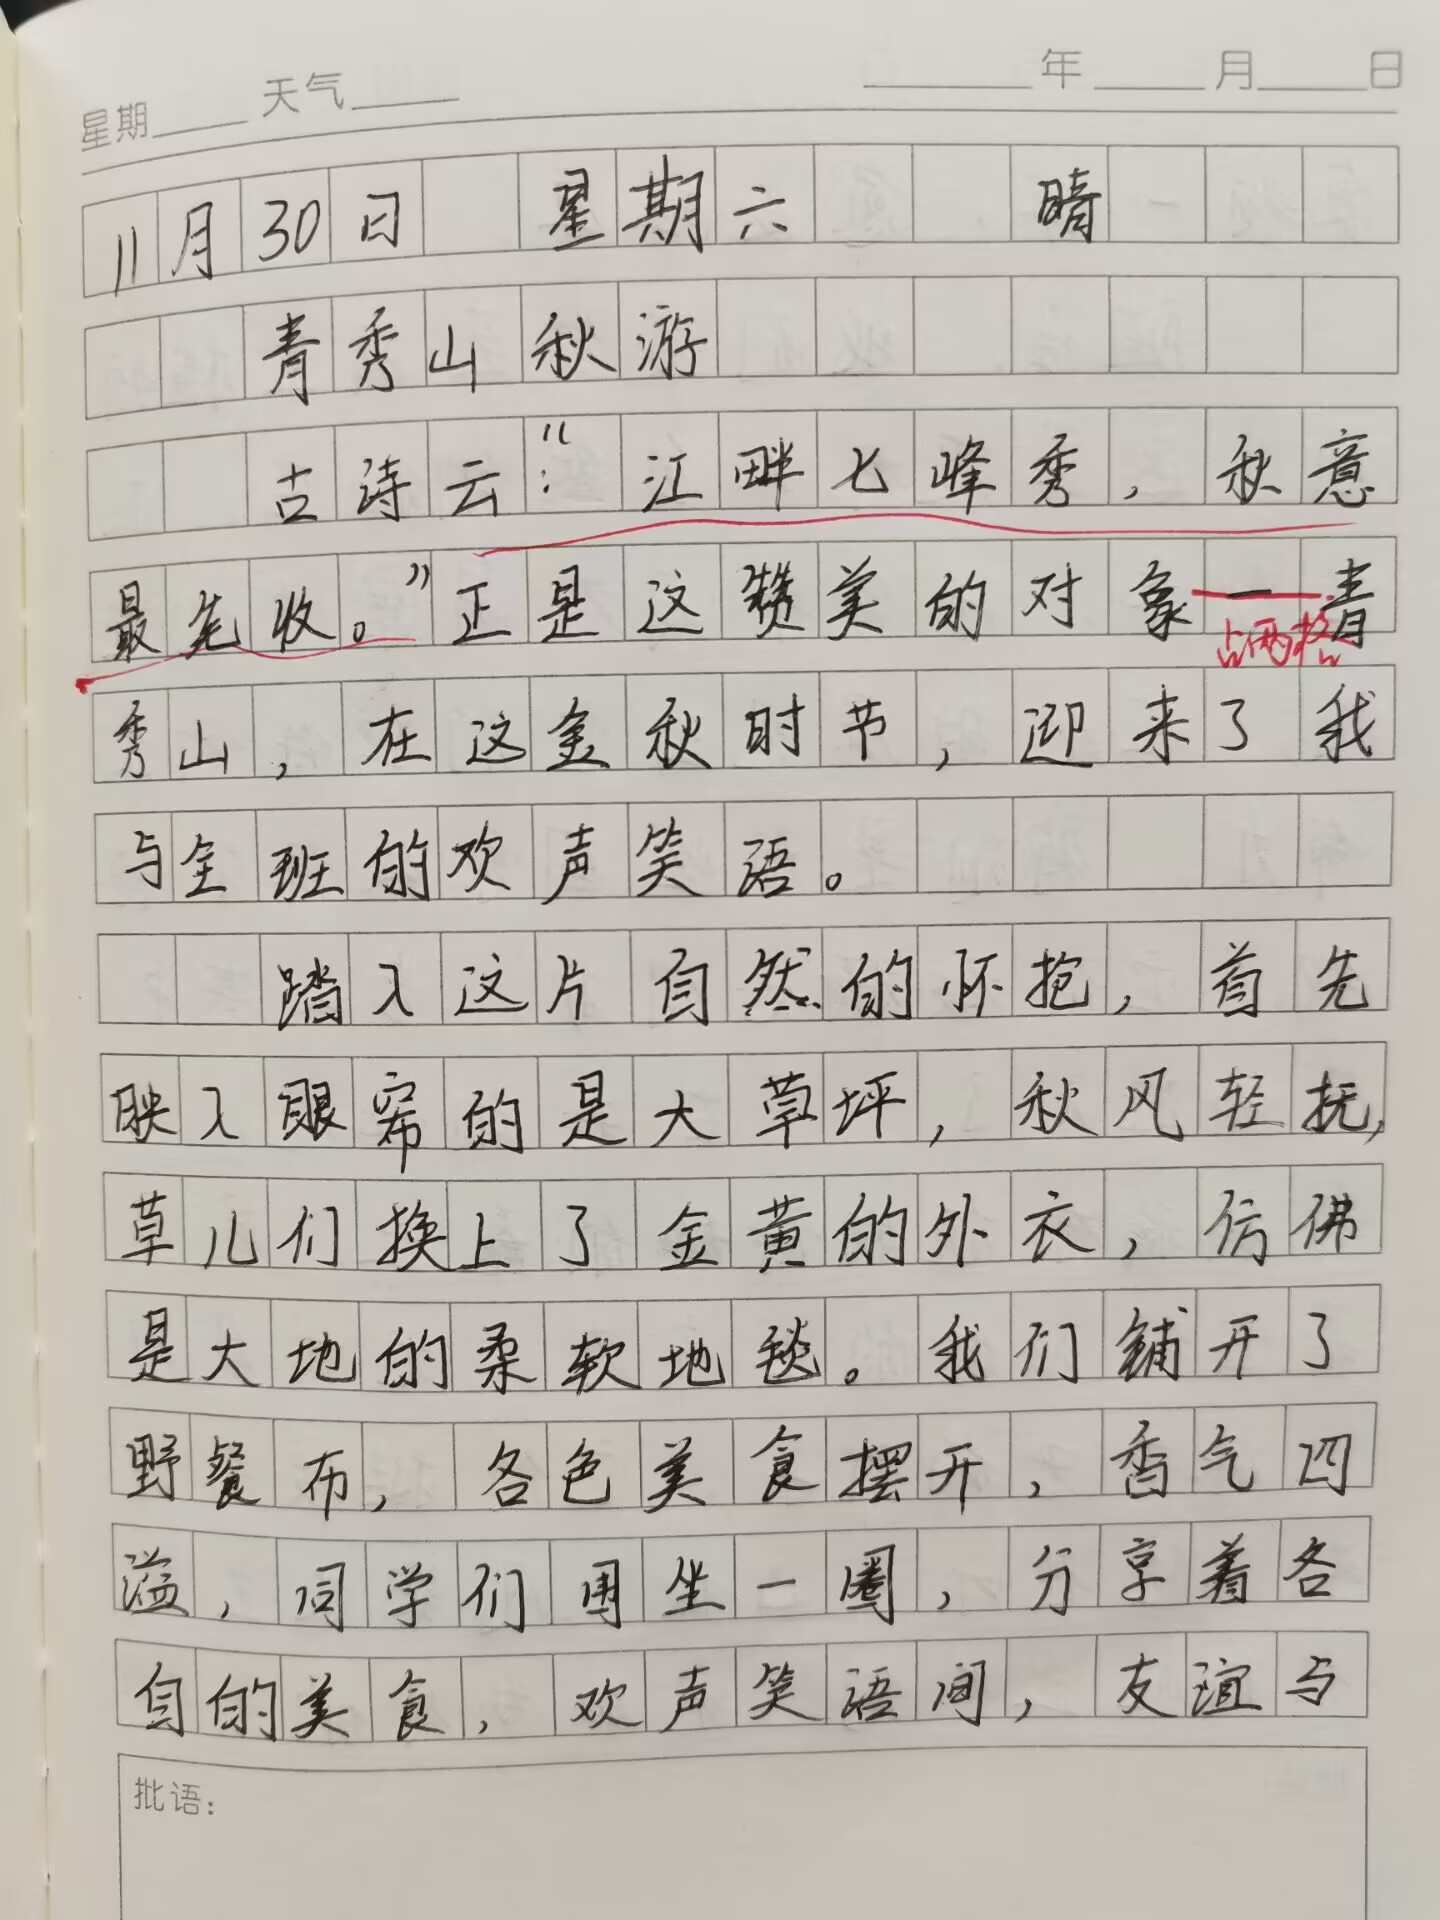 星期____ 天气____ ____年____月____日
11月30日 星期六 晴
青秀山秋游
古诗云:“江畔七峰秀,秋意
最先收。”正是这赞美的对象—青
占两格
秀山,在这金秋时节,迎来了我
与全班的欢声笑语。
踏入这片自然的怀抱,首先
映入眼帘的是大草坪,秋风轻抚,
草儿们换上了金黄的外衣,仿佛
是大地的柔软地毯。我们铺开了
野餐布,各色美食摆开,香气四
溢,同学们围坐一圈,分享着各
自的美食,欢声笑语间,友谊与
批语: